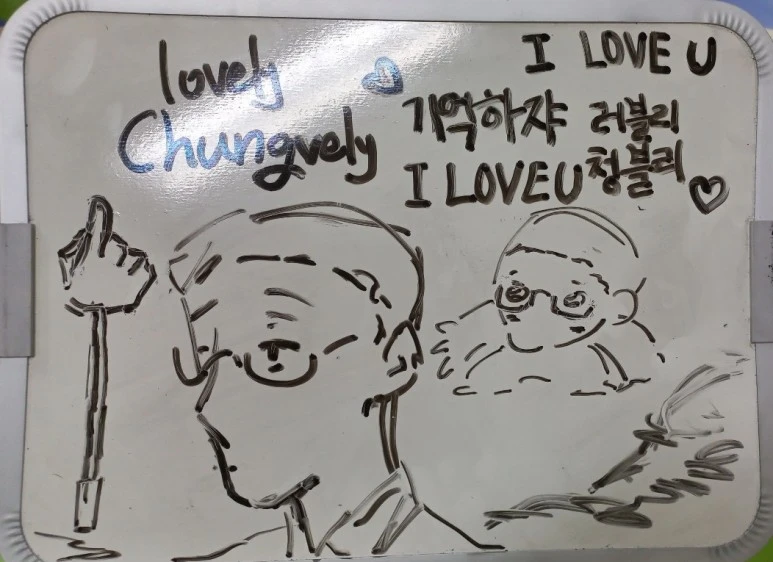 lovely
Chungvely
I LOVE U
기억하쟈 러블리
I LOVE U 청블리